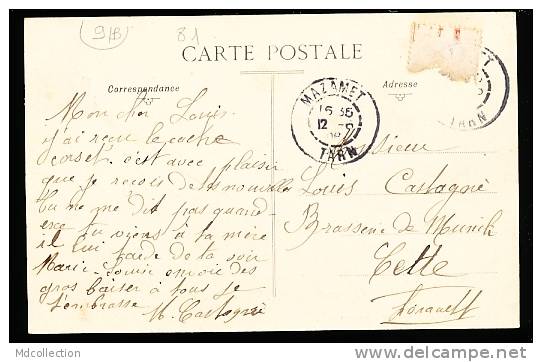 9/B
81
CARTE POSTALE
Correspondance
Adresse
MAZAMET
16 35
12
TARN
TARN
Mon cher Louis
j'ai reçu le cache
corset, c'est avec plaisir
que je reçois de tes nouvelles
tu ne me dit pas quand
tu viens à ta mère
il lui tarde de la voir
Marie-Louise envoie des
gros baiser à tous je
t'embrasse
M. Castagné
Monsieur
Louis Castagné
Brasserie de Munich
Cette
Hérault
MDcollection
delcampe.net